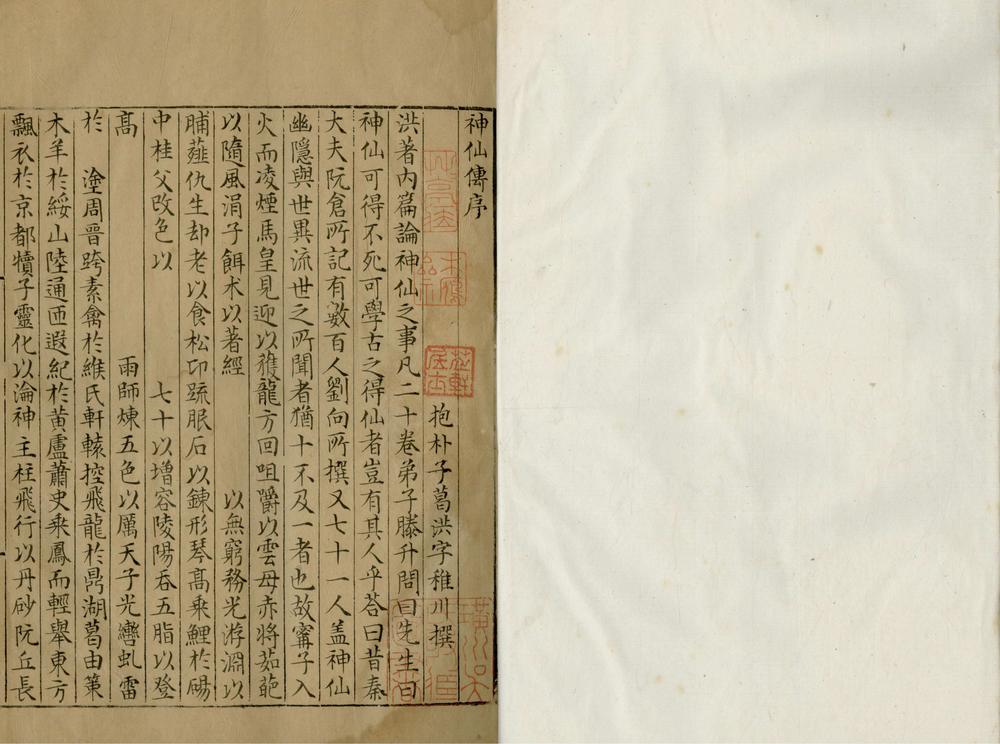 神仙傳序
抱朴子葛洪字稚川撰
洪著内篇論神仙之事凡二十卷弟子滕升問曰先生曰
神仙可得不死可學古之得仙者豈有其人乎荅曰昔秦
大夫阮倉所記有數百人劉向所撰又七十一人盖神仙
幽隱與世異流世之所聞者猶十不及一者也故甯子入
火而凌煙馬皇見迎以䕶龍方回咀嚼以雲母赤將茹葩
以隨風涓子餌术以著經 以無窮務光游淵以
脯薤仇生却老以食松卭踈眠石以鍊形琴髙乘鯉於碭
中桂父改色以 七十以增容陵陽吞五脂以登
髙 雨師煉五色以厲天子光轡虬雷
於 塗周晉跨素禽於緱氏軒轅控飛龍於鼎湖葛由策
木羊於綏山陸通匝遐紀於黄盧蕭史乘鳳而輕舉東方
飄衣於京都犢子靈化以淪神主柱飛行以丹砂阮丘長